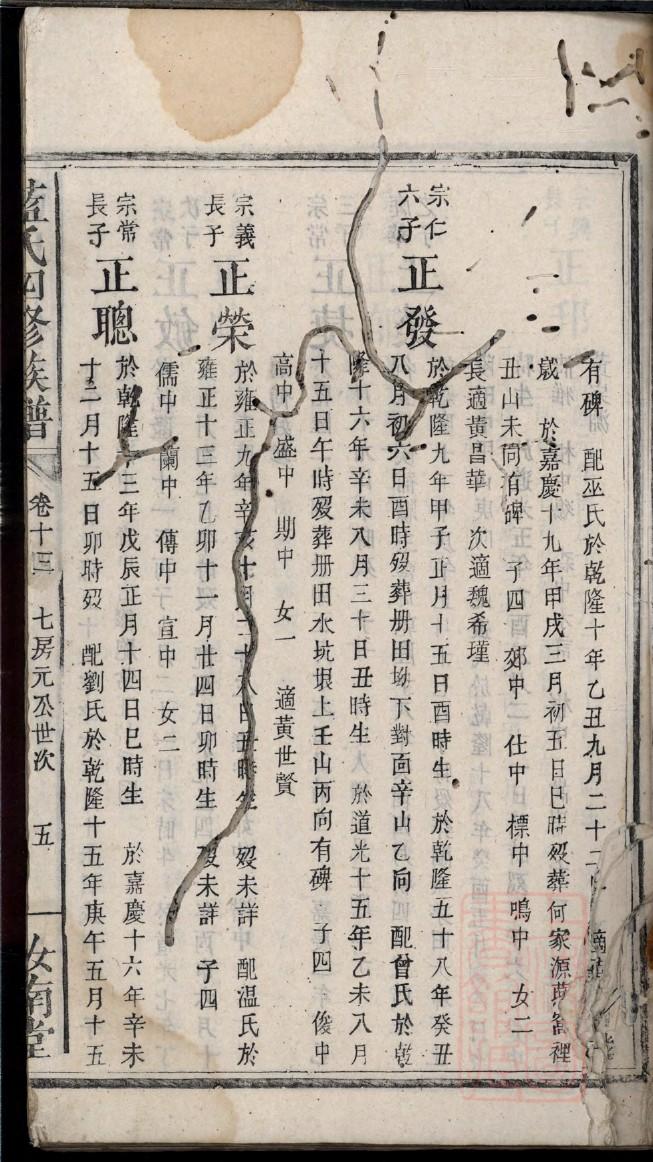 有碑 配巫氏於乾隆十年乙丑九月二十二
歲 於嘉慶十九年甲戌三月初五日巳時歿葬何家源 裡
丑山未向有碑 子四 郊中 仕中 標中 鳴中 女二
長適黃昌華 次適魏希瑾
宗仁六子 正發 於乾隆九年甲子正月十五日酉時生 於乾隆五十八年癸丑
八月初六日酉時歿葬册田坳下對面辛山乙向 配曾氏於乾
隆十六年辛未八月三十日丑時生 於道光十五年乙未八月
十五日午時歿葬册田水坑垠上壬山丙向有碑 子四 俊中
高中 盛中 期中 女一 適黃世賢
宗義長子 正榮 於雍正九年辛亥七月二十八日丑時生 歿未詳 配温氏於
雍正十三年乙卯十一月廿四日卯時生 歿未詳 子四
儒中 蘭中 傳中 宣中 女二
宗常長子 正聰 於乾隆十三年戊辰正月十四日巳時生 於嘉慶十六年辛未
十二月十五日卯時歿 配劉氏於乾隆十五年庚午五月十五
藍氏四修族譜 卷十三 七房元公世次 五 汝南堂